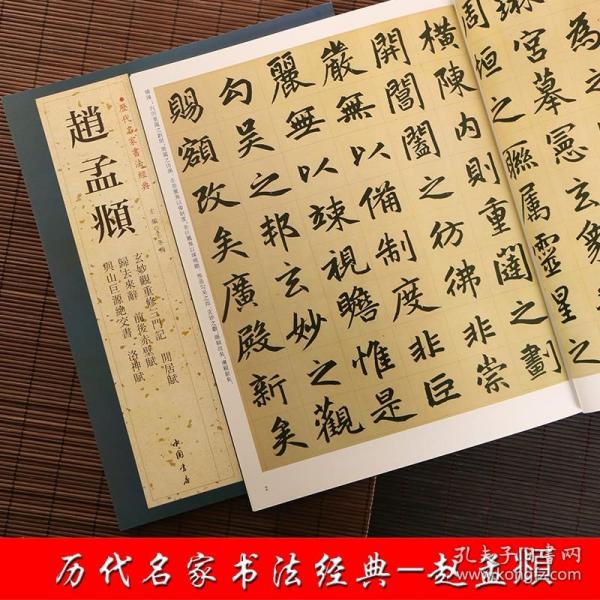 歷代名家書法經典
趙孟頫
玄妙觀重修三門記 閒居賦
歸去來辭 前後赤壁賦
與山巨源絕交書 洛神賦
中國書店
為之
琳宮摹憲玄象
周垣之聯屬靈星之
橫陳內則重闥之劃
開閶闔之彷彿非崇
嚴無以備制度非巨
麗無以竦視瞻惟是
勾吳之邦玄妙之觀
賜額改矣廣殿新矣
2
历代名家书法经典—赵孟頫
孔夫子旧书网
www.kongfz.com